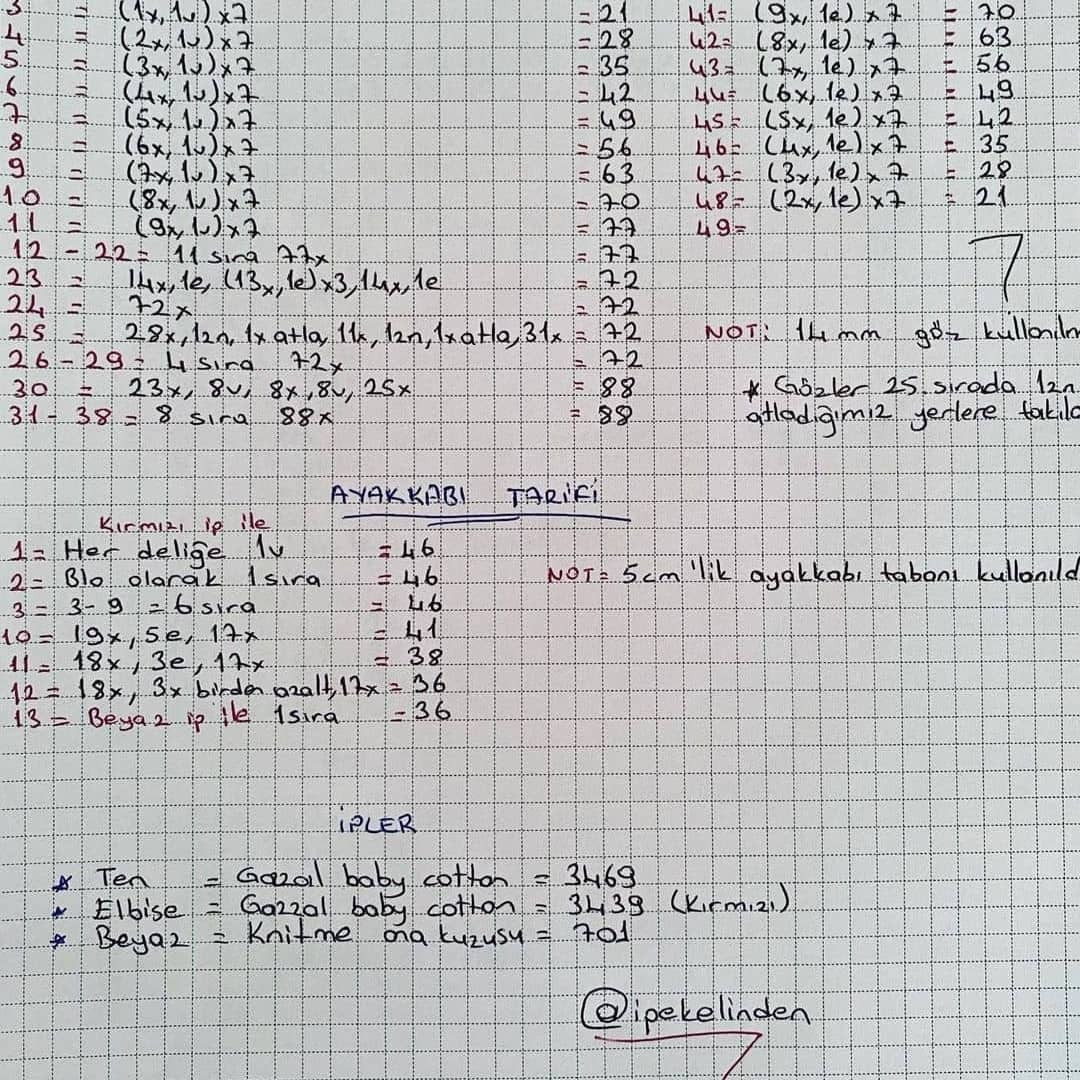 3 = (1x, 1v) x7 = 21
4 = (2x, 1v) x7 = 28
5 = (3x, 1v) x7 = 35
6 = (4x, 1v) x7 = 42
7 = (5x, 1v) x7 = 49
8 = (6x, 1v) x7 = 56
9 = (7x, 1v) x7 = 63
10 = (8x, 1v) x7 = 70
11 = (9x, 1v) x7 = 77
12 - 22 = 11 sıra 77x = 77
23 = 14x, 1e, (13x, 1e) x3, 14x, 1e = 72
24 = 72x = 72
25 = 28x, 12n, 1x atla, 11x, 12n, 1x atla, 31x = 72
26 - 29 = 4 sıra 72x = 72
30 = 23x, 8v, 8x, 8v, 25x = 88
31 - 38 = 8 sıra 88x = 88
41= (9x, 1e) x7 = 70
42= (8x, 1e) x7 = 63
43= (7x, 1e) x7 = 56
44= (6x, 1e) x7 = 49
45= (5x, 1e) x7 = 42
46= (4x, 1e) x7 = 35
47= (3x, 1e) x7 = 28
48= (2x, 1e) x7 = 21
49=
NOT: 14 mm göz küllanıln
* Gözler 25. sırada 12n.
atladığımız yerlere takılc
AYAKKABI TARİFİ
Kırmızı ip ile
1= Her deliğe 1v = 46
2= Blo olarak 1 sıra = 46
3 = 3-9 = 6 sıra = 46
10= 19x, 5e, 17x = 41
11= 18x, 3e, 17x = 38
12 = 18x, 3x birden azalt, 17x = 36
13 = Beyaz ip ile 1 sıra = 36
NOT= 5cm'lik ayakkabı tabanı kullanıld
İPLER
* Ten = Gazal baby cotton = 3469
* Elbise = Gazzal baby cotton = 3439 (Kırmızı)
* Beyaz = Knitme ana kuzusu = 701
@ipekelinden